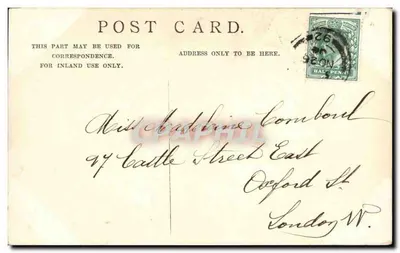 POST CARD.
THIS PART MAY BE USED FOR
CORRESPONDENCE.
FOR INLAND USE ONLY.
ADDRESS ONLY TO BE HERE.
HALF PENNY
Miss Madeline
97 Castle Street East
Oxford St.
London W.